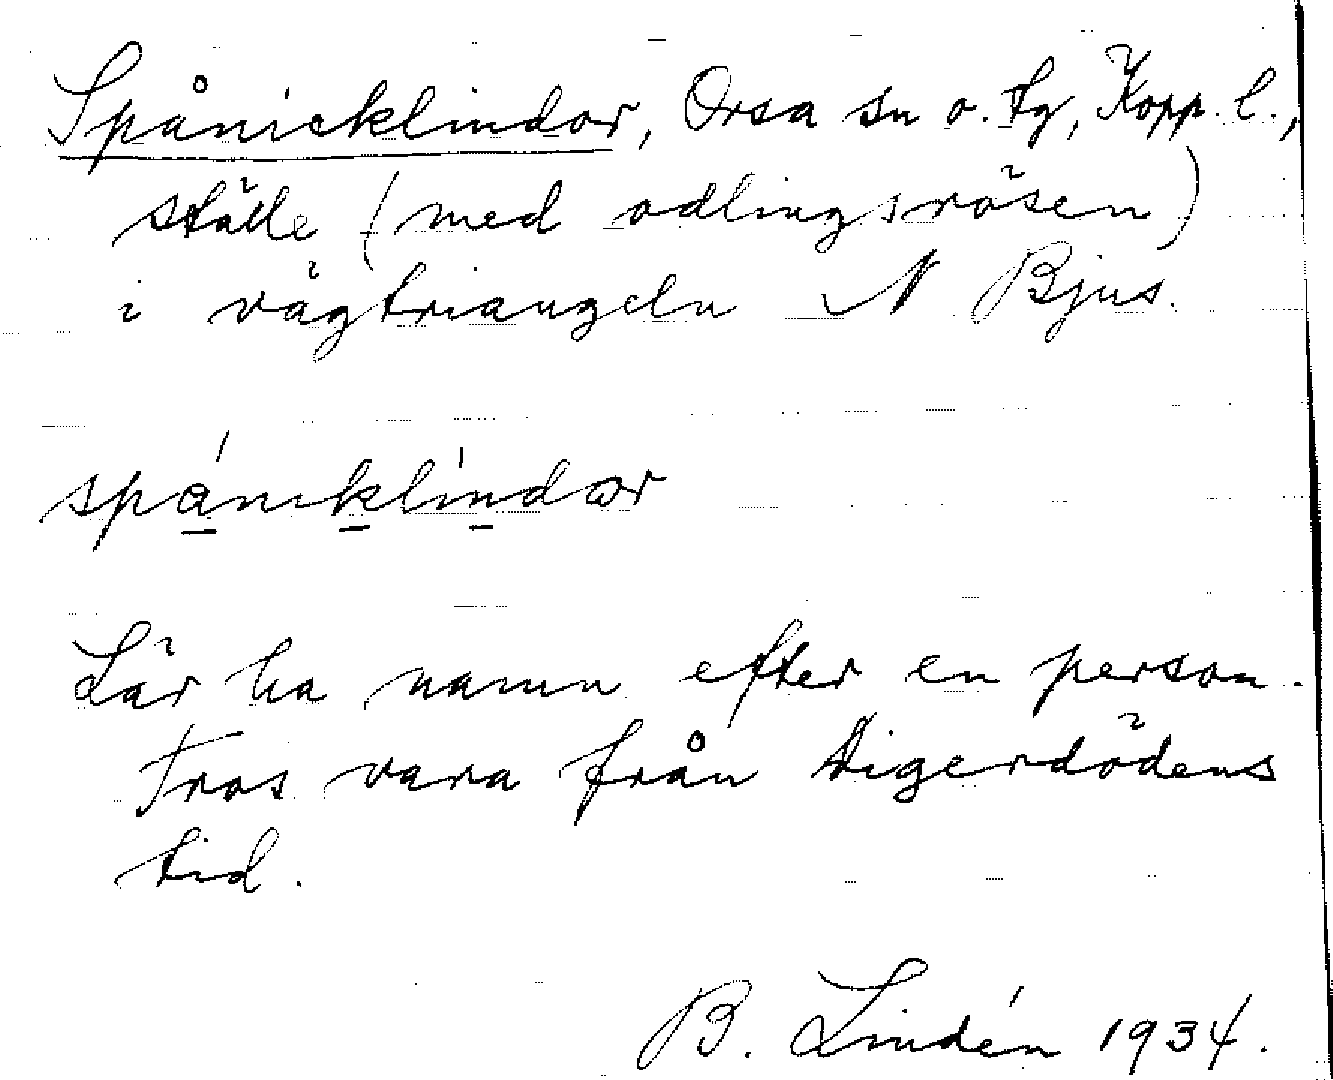 Spånicklindor, Orsa sn o. tg, Kopp. l.,
ställe (med odlingsrösen)
i vägtriangeln N Bjus.
spániklíndor
Lär ha namn efter en person.
Tros vara från Digerdödens
tid.
B. Lindén 1934.